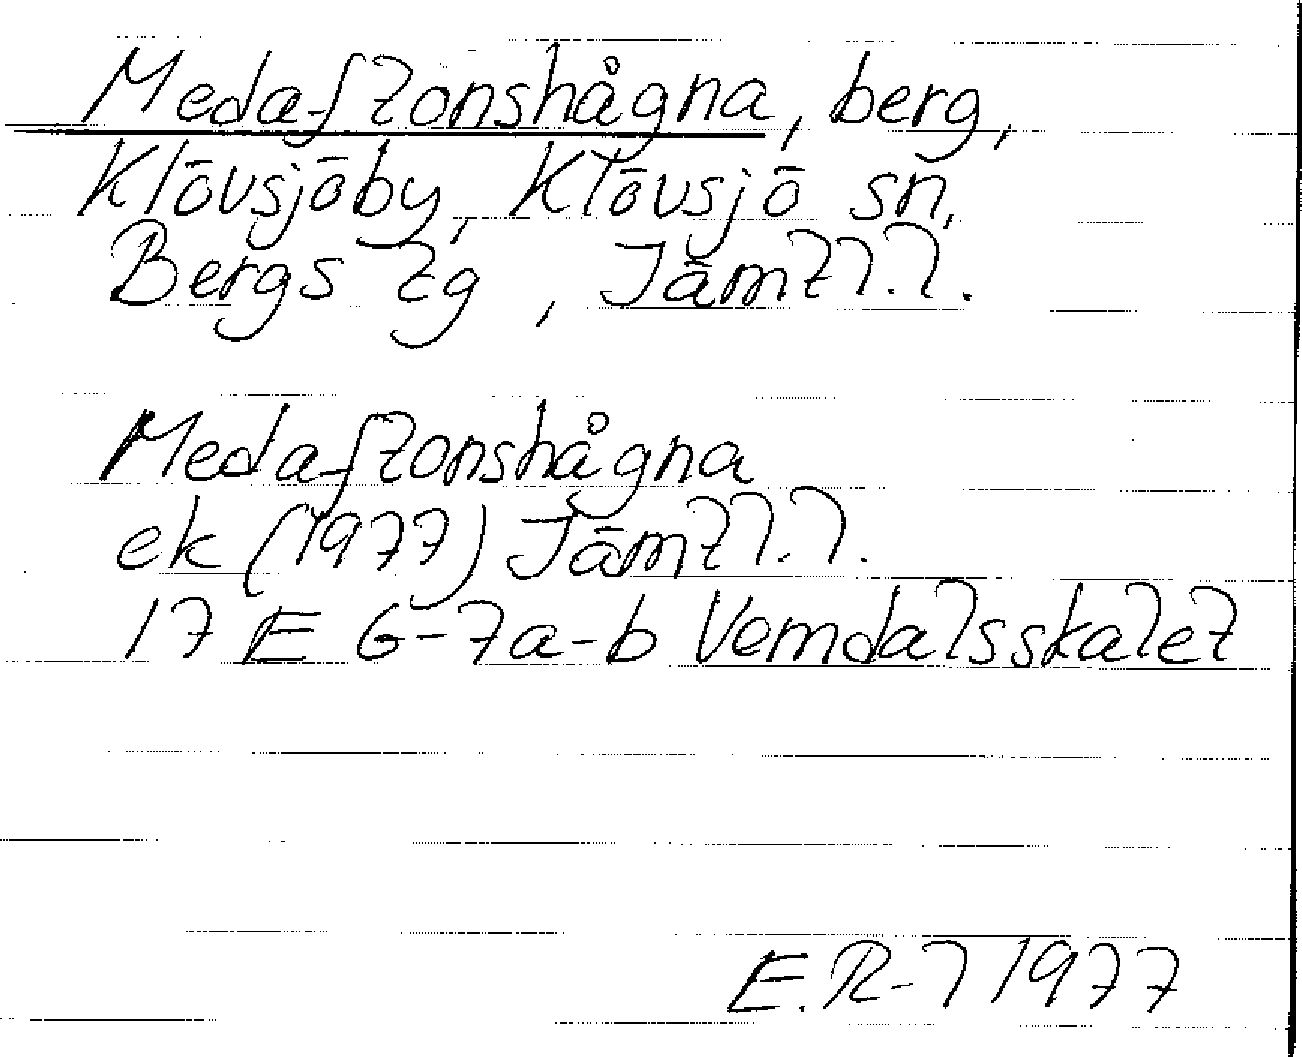 Medaftonshågna, berg,
Klövsjöby, Klövsjö sn,
Bergs tg, Jämtl.l.
Medaftonshågna
ek (1977) Jämtl.l.
17 E 6-7a-b Vemdalsskalet
E.R-l 1977